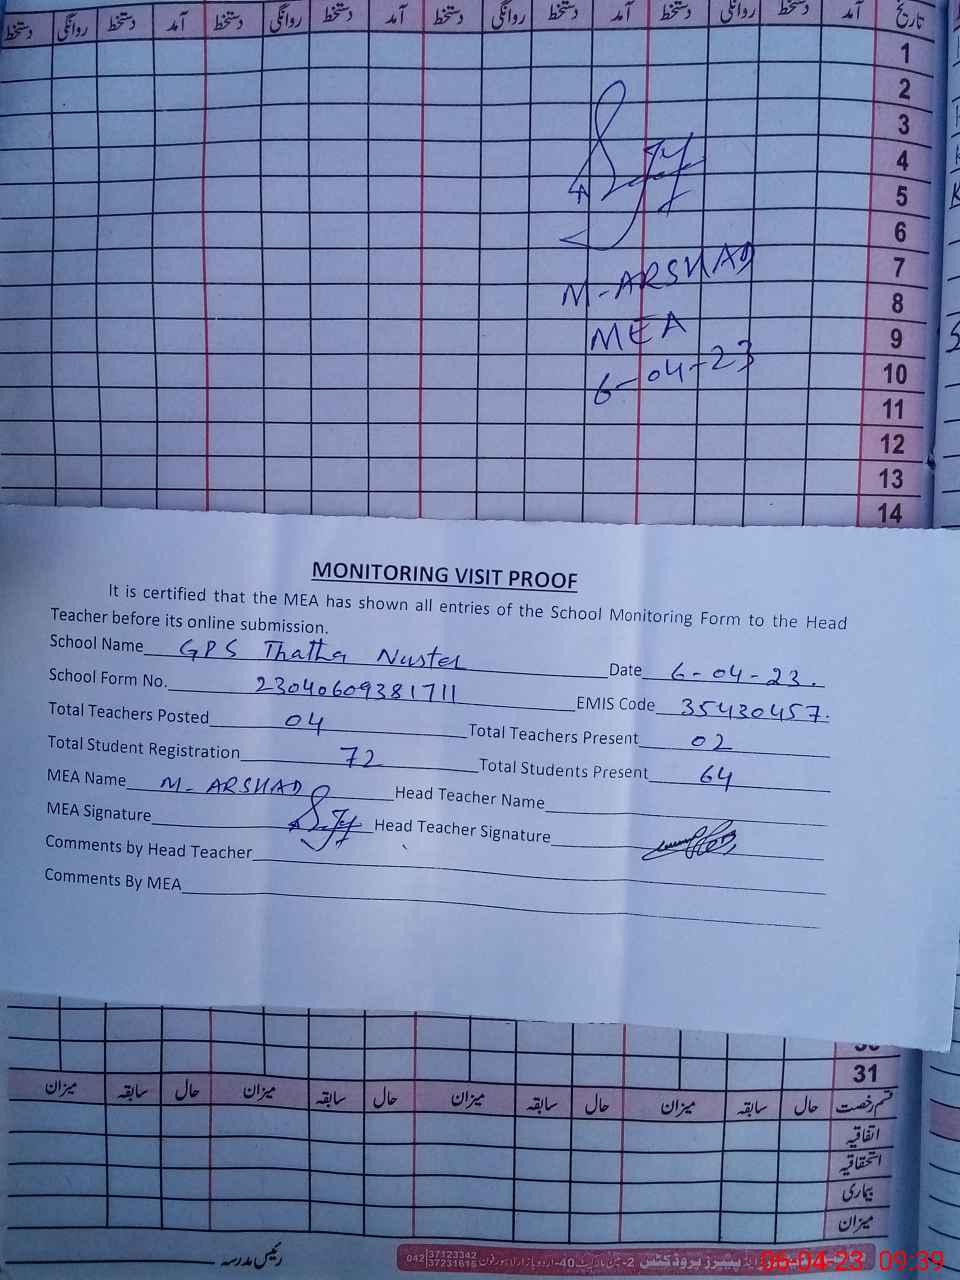 تاریخ آمد دستخط روانگی دستخط آمد دستخط روانگی دستخط آمد دستخط روانگی دستخط آمد دستخط روانگی دستخط
1
2
3
4
5
6
7
8
9
10
11
12
13
14
M-ARSHAD
MEA
6-04-23
MONITORING VISIT PROOF
It is certified that the MEA has shown all entries of the School Monitoring Form to the Head
Teacher before its online submission.
School Name GPS Thatha Nustel Date 6-04-23.
School Form No. 23040609381711 EMIS Code 35430457.
Total Teachers Posted 04 Total Teachers Present 02
Total Student Registration 72 Total Students Present 64
MEA Name M-ARSHAD Head Teacher Name
MEA Signature Head Teacher Signature
Comments by Head Teacher
Comments By MEA
31
قسم رخصت حال سابقہ میزان حال سابقہ میزان حال سابقہ میزان حال سابقہ میزان
اتفاقیہ
استحقاقیہ
بیماری
میزان
رئیس مدرسہ
پیپرز پروڈکٹس 2- 40-اردو بازار لاہور فون 042 37123342 37231616
06-04-23 09:39